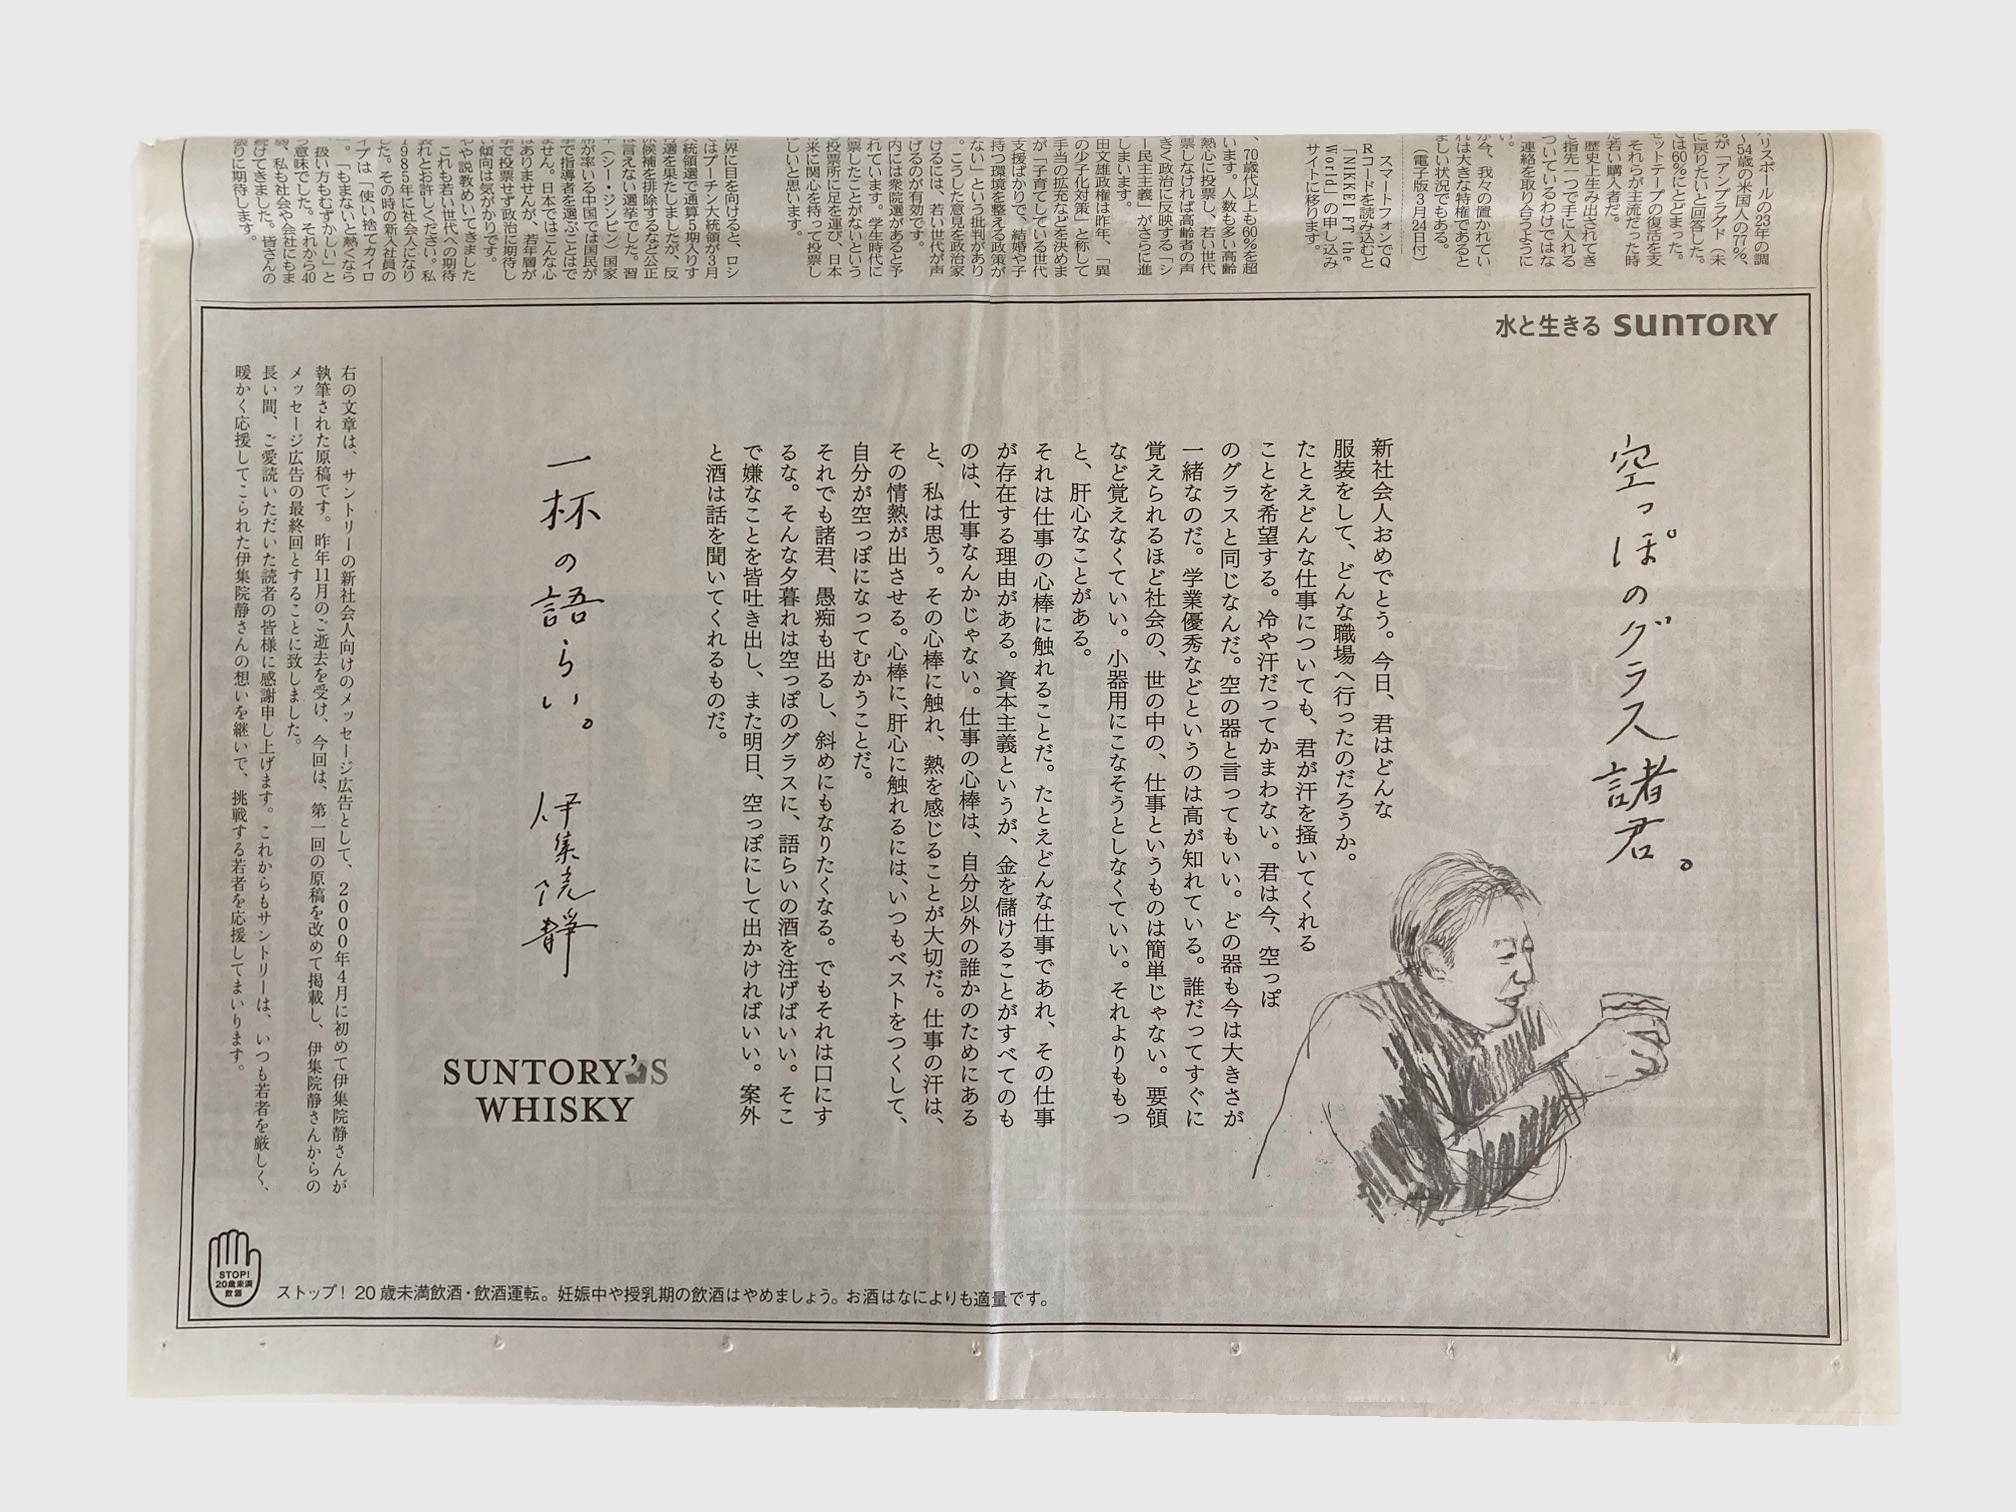 ハリスポールの23年の調
〜54歳の米国人の77%、
が「アンプラグド（未
に戻りたいと回答した。
は60%にとどまった。
ットテープの復活を支
それらが主流だった時
若い購入者だ。
歴史上生み出されてき
指先一つで手に入れる
ついているわけではな
連絡を取り合うように
い。
が今、我々の置かれてい
れは大きな特権であると
ましい状況でもある。
（電子版3月24日付）
スマートフォンでQ
Rコードを読み込むと
「NIKKEI FT the
World」の申し込み
サイトに移ります。
、70歳代以上も60%を超
います。人数も多い高齢
熱心に投票し、若い世代
票しなければ高齢者の声
きく政治に反映する「シ
ー民主主義」がさらに進
しまいます。
田文雄政権は昨年、「異
の少子化対策」と称して
手当の拡充などを決めま
が「子育てしている世代
支援ばかりで、結婚や子
持つ環境を整える政策が
ない」という批判があり
。こうした意見を政治家
けるには、若い世代が声
げるのが有効です。
内には衆院選があると予
れています。学生時代に
票したことがないという
投票所に足を運び、日本
来に関心を持って投票し
しいと思います。
界に目を向けると、ロシ
はプーチン大統領が3月
統領選で通算5期入りす
選を果たしましたが、反
候補を排除するなど公正
は言えない選挙でした。習
（シー・ジンピン）国家
席が率いる中国では国民が
で指導者を選ぶことはで
ません。日本ではこんな心
はありませんが、若年層が
で投票せず政治に期待し
傾向は気がかりです。
や説教めいてきました
これも若い世代への期待
れとお許しください。私
1985年に社会人になり
た。その時の新入社員の
プは「使い捨てカイロ
。「もまないと熱くなら
扱い方もむずかしい」と
意味でした。それから40
、私も社会や会社にもま
続けてきました。皆さんの
張りに期待します。
水と生きる SUNTORY
空っぽのグラス諸君。
新社会人おめでとう。今日、君はどんな
服装をして、どんな職場へ行ったのだろうか。
たとえどんな仕事についても、君が汗を掻いてくれる
ことを希望する。冷や汗だってかまわない。君は今、空っぽ
のグラスと同じなんだ。空の器と言ってもいい。どの器も今は大きさが
一緒なのだ。学業優秀などというのは高が知れている。誰だってすぐに
覚えられるほど社会の、世の中の、仕事というものは簡単じゃない。要領
など覚えなくていい。小器用にこなそうとしなくていい。それよりももっ
と、肝心なことがある。
それは仕事の心棒に触れることだ。たとえどんな仕事であれ、その仕事
が存在する理由がある。資本主義というが、金を儲けることがすべてのも
のは、仕事なんかじゃない。仕事の心棒は、自分以外の誰かのためにある
と、私は思う。その心棒に触れ、熱を感じることが大切だ。仕事の汗は、
その情熱が出させる。心棒に、肝心に触れるには、いつもベストをつくして、
自分が空っぽになってむかうことだ。
それでも諸君、愚痴も出るし、斜めにもなりたくなる。でもそれは口にす
るな。そんな夕暮れは空っぽのグラスに、語らいの酒を注げばいい。そこ
で嫌なことを皆吐き出し、また明日、空っぽにして出かければいい。案外
と酒は話を聞いてくれるものだ。
一杯の語らい。 伊集院静
SUNTORY'S
WHISKY
右の文章は、サントリーの新社会人向けのメッセージ広告として、2000年4月に初めて伊集院静さんが
執筆された原稿です。昨年11月のご逝去を受け、今回は、第一回の原稿を改めて掲載し、伊集院静さんからの
メッセージ広告の最終回とすることに致しました。
長い間、ご愛読いただいた読者の皆様に感謝申し上げます。これからもサントリーは、いつも若者を厳しく、
暖かく応援してこられた伊集院静さんの想いを継いで、挑戦する若者を応援してまいります。
STOP!
20歳未満
飲酒
ストップ！ 20歳未満飲酒・飲酒運転。妊娠中や授乳期の飲酒はやめましょう。お酒はなによりも適量です。